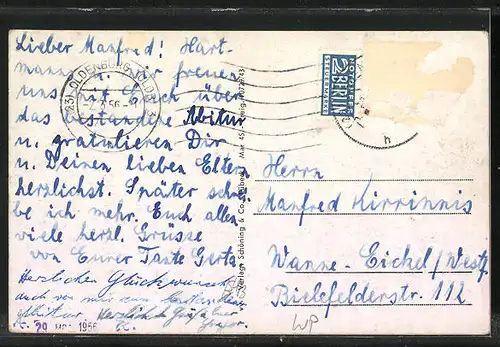 Lieber Manfred! Hart-
manns u. wir freuen
uns mit Euch über
das bestandene Abitur
u. gratulieren Dir
u. Deinen lieben Eltern
herzlichst. Später schrei-
be ich mehr. Euch allen
viele herzl. Grüsse
von Eurer Tante Gerta.
Herzlichen Glückwunsch
auch von mir zum bestandenen
Abitur. Herzliche Grüße Euer
OLDENBURG (OLDB)
NOTOPFER
2 BERLIN
STEUERMARKE
Verlag Schöning & Co., Lübeck
Herrn
Manfred Kirrinnis
Wanne-Eickel/Westf.
Bielefelderstr. 112
WP